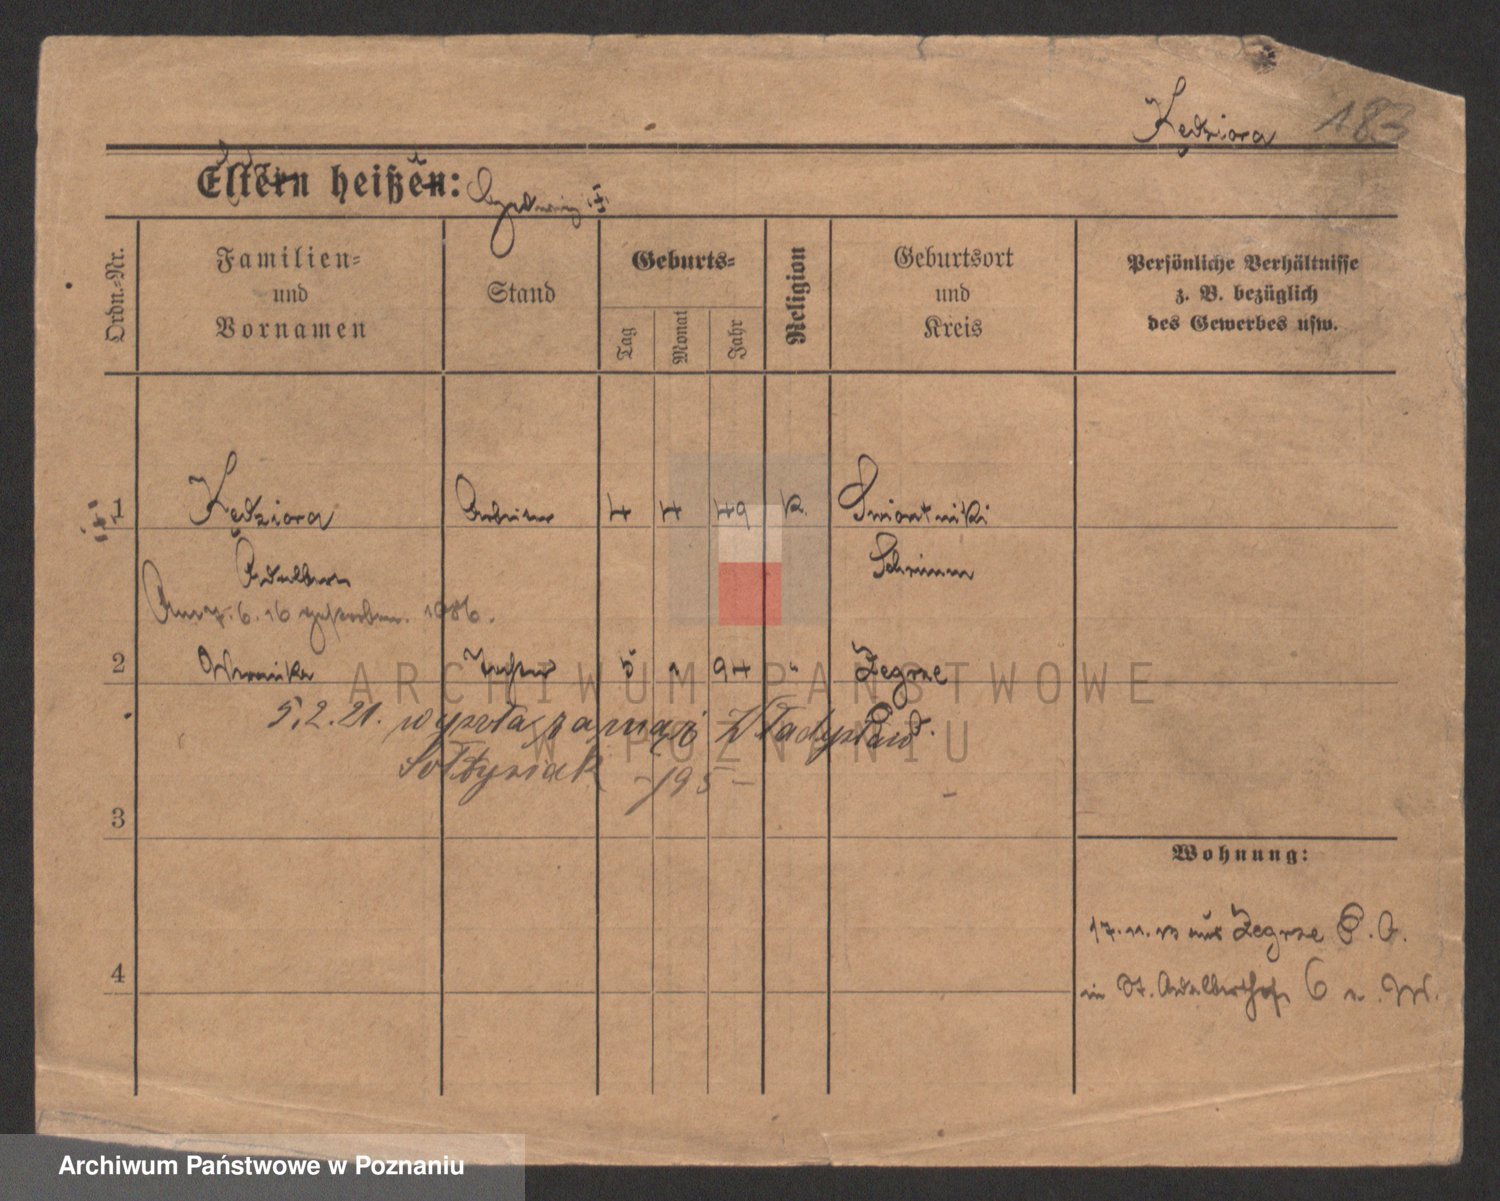 Kędziora 183
Eltern heißen:
Ordn.-Nr.
Familien-
und
Vornamen
Stand
Geburts-
Tag
Monat
Jahr
Religion
Geburtsort
und
Kreis
Persönliche Verhältnisse
z. B. bezüglich
des Gewerbes usw.
1 Kędziora Arbeiter 4 4 49 k. Sniontniki
Adalbert Schrimm
Am 7.6.16 gestorben. 1086.
2 Veronika Tochter 5 1 94 " Zegrze
5.2.21. wyszła za mąż Władysław
Sołtysiak -195-
3
4
Wohnung:
17.11. aus Zegrze
in St. Adalberthof 6
ARCHIWUM PAŃSTWOWE
W POZNANIU
Archiwum Państwowe w Poznaniu